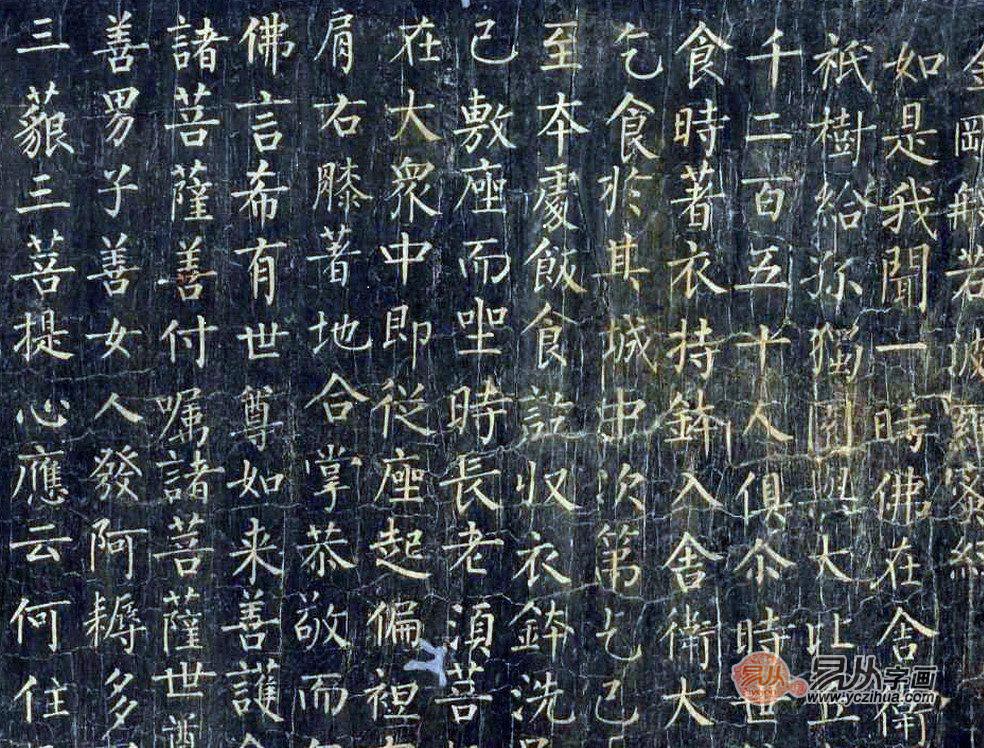 金剛般若波羅蜜經
如是我聞一時佛在舍衛
祇樹給孤獨園與大比丘
千二百五十人俱尒時世
食時著衣持鉢入舍衛大
乞食於其城中次第乞已
至本處飯食訖収衣鉢洗
已敷座而坐時長老須菩
在大衆中即從座起偏袒
肩右膝著地合掌恭敬而
佛言希有世尊如来善護
諸菩薩善付嘱諸菩薩世尊
善男子善女人發阿耨多
三藐三菩提心應云何住
易从字画
www.yczihua.com